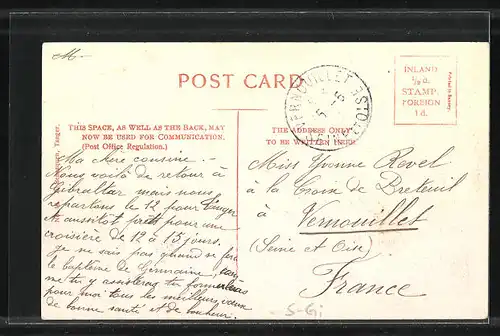 M.-
POST CARD
INLAND
½ d.
STAMP.
FOREIGN
1 d.
VERNOUILLET
THIS SPACE, AS WELL AS THE BACK, MAY
NOW BE USED FOR COMMUNICATION.
(Post Office Regulation.)
THE ADDRESS ONLY
TO BE WRITTEN HERE.
Tanger.
Ma chère cousine.-
Nous voilà de retour à
Gibraltar mais nous
repartons le 12 pour Tanger
et aussitôt prêts pour une
croisière de 12 à 15 jours.
Je ne sais pas quand se fera
le baptême de Germaine, mais
me tu y assisteras tu formuleras
pour moi tous les meilleurs vœux
de bonne santé et de bonheur.
Miss Yvonne Revel
à la Croix de Breteuil
à Vernouillet
(Seine et Oise)
France
S-Gi